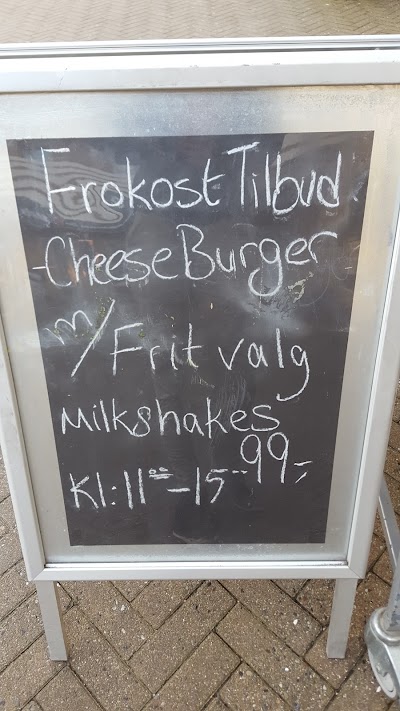 Frokost Tilbud
-CheeseBurger
m/Frit valg
Milkshakes
99,-
Kl:11⁰⁰-15⁻⁻